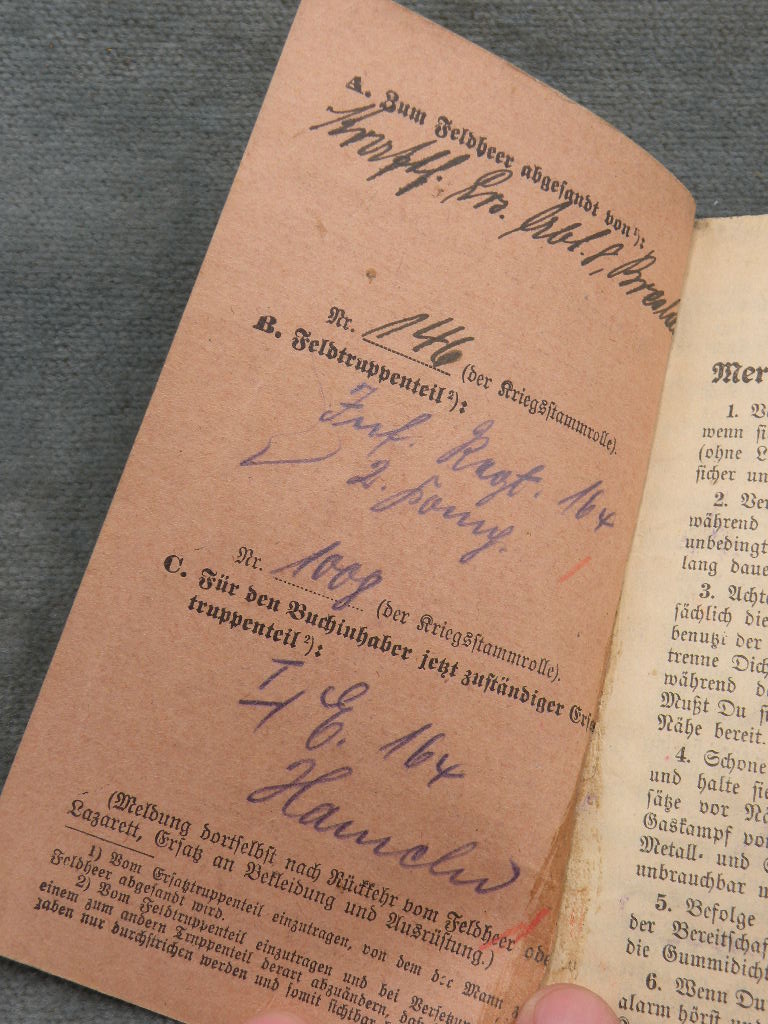 A. Zum Feldheer abgesandt von¹):
Kraftf. Ers. Abt. 8, Breslau
Nr. 146 (der Kriegsstammrolle).
B. Feldtruppenteil²):
Inf. Regt. 164
2. Komp.
Nr. 1009 (der Kriegsstammrolle).
C. Für den Buchinhaber jetzt zuständiger Ersa
truppenteil²):
I/ E. 164
Hameln
(Meldung dortselbst nach Rückkehr vom Feldheer ode
Lazarett, Ersatz an Bekleidung und Ausrüstung.)
1) Vom Ersatztruppenteil einzutragen, von dem der Mann z
Feldheer abgesandt wird.
2) Vom Feldtruppenteil einzutragen und bei Versetzun
einem zum andern Truppenteil derart abzuändern, daß
gaben nur durchstrichen werden und somit sichtbar
Mer
1. V
wenn si
(ohne L
sicher un
2. Ver
während
unbedingt
lang daue
3. Achte
sächlich die
benutzt der
trenne Dich
während de
Mußt Du si
Nähe bereit.
4. Schone
und halte sie
sätze vor Nä
Gaskampf vor
Metall- und
unbrauchbar u
5. Befolge
der Bereitschaf
die Gummidicht
6. Wenn Du
alarm hörst un